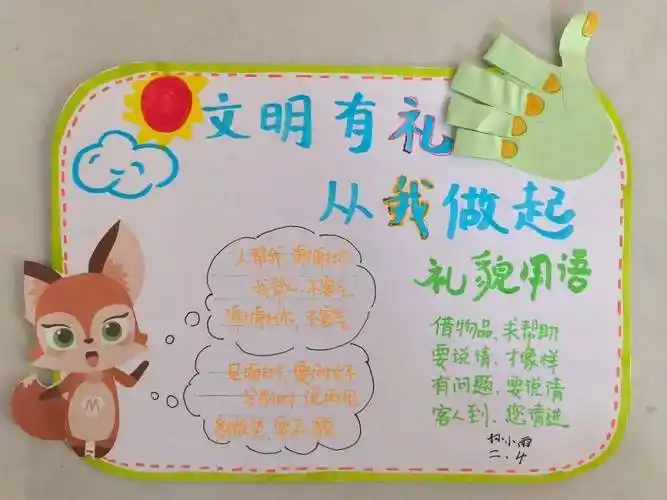 文明有礼
从我做起
礼貌用语
人帮我,谢谢你
我帮人,不客气
谢谢你,不客气
见面时,要问好
分别时,说再见
借物品、求帮助
要说请,才像样
有问题,要说请
客人到、您请进
孙小雨
二.4
M